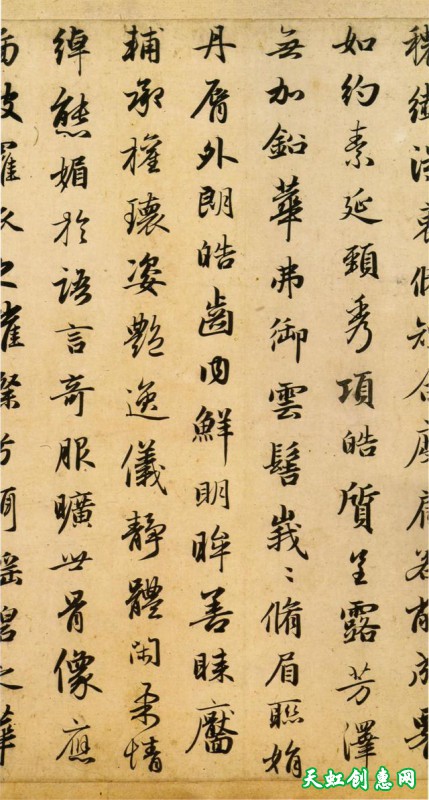 穠纖得衷脩短合度肩若削成
如約素延頸秀項皓質呈露芳澤
無加鉛華弗御雲髻峩〻脩眉聯娟
丹脣外朗皓齒内鮮明眸善睞靨
輔承權瓌姿艶逸儀靜體閑柔情
綽態媚於語言奇服曠世骨像應
披羅衣之璀粲兮珥瑤碧之華
天虹创惠网